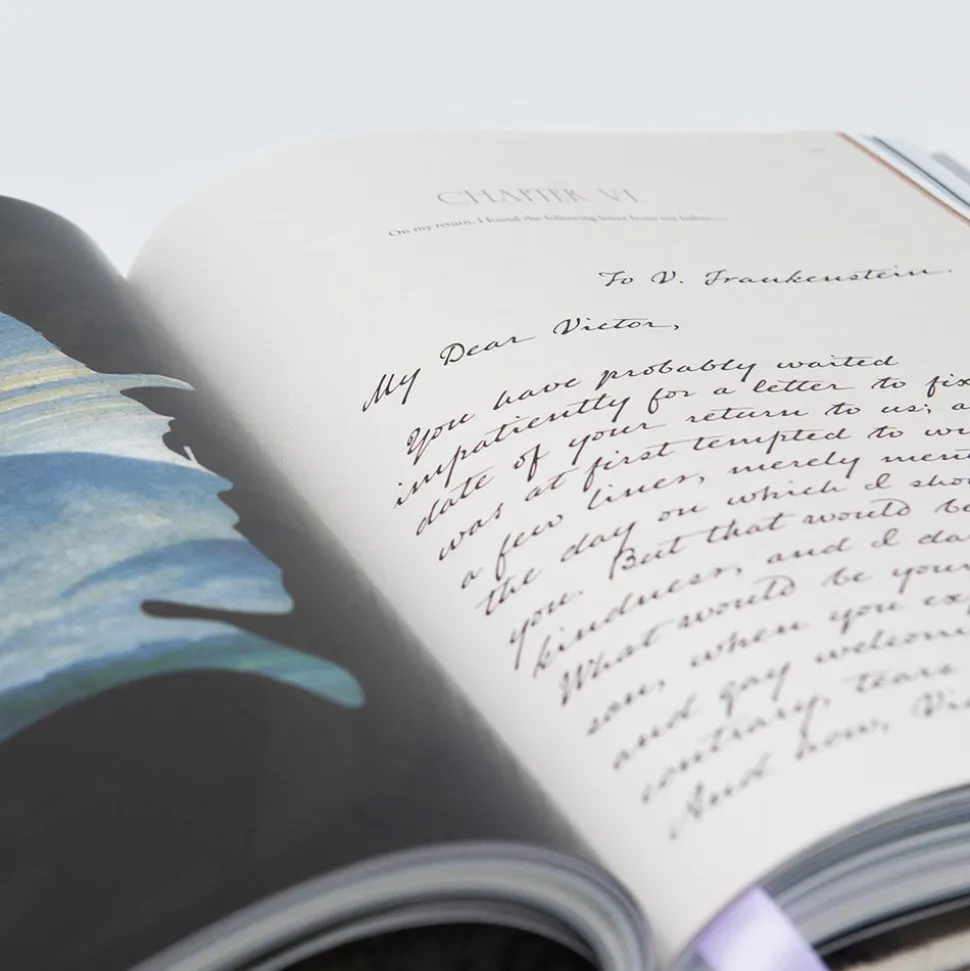 CHAPTER VI.
On my return, I found the following letter from my father:—
To V. Frankenstein.
My Dear Victor,
You have probably waited
impatiently for a letter to fix
date of your return to us; a
was at first tempted to wri
a few lines, merely ment
the day on which I sho
you. But that would be
kindness, and I da
What would be your
son, when you exp
and gay welcom
contrary, tears
And now, Vic